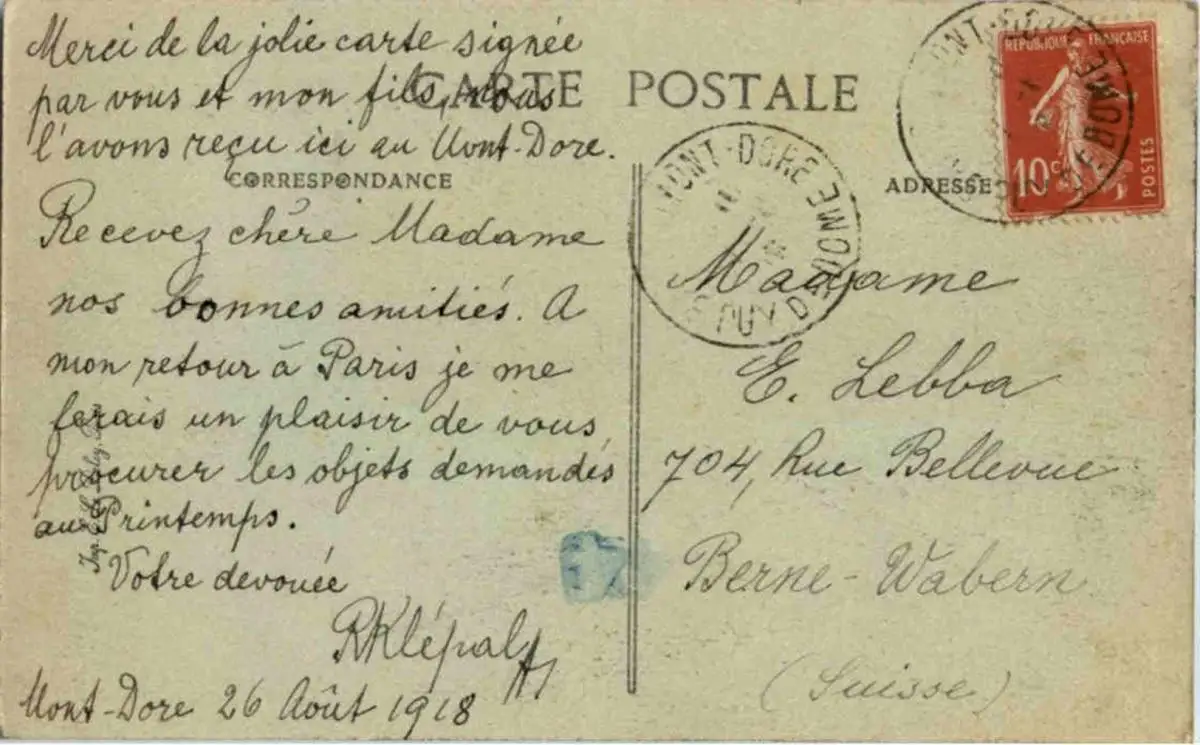 Merci de la jolie carte signée
par vous et mon fils, nous
l'avons reçu ici au Mont-Dore.
CARTE POSTALE
CORRESPONDANCE
Recevez chère Madame
nos bonnes amitiés. A
mon retour à Paris je me
ferais un plaisir de vous
procurer les objets demandés
au Printemps.
Votre devouée
Mont-Dore 26 Août 1918
ADRESSE
Madame
E. Lebba
704, Rue Bellevue
Berne-Wabern
(Suisse)
RÉPUBLIQUE FRANÇAISE
10c
POSTES
MONT-DORE
PUY DE DOME
MONT-DORE
PUY DE DOME